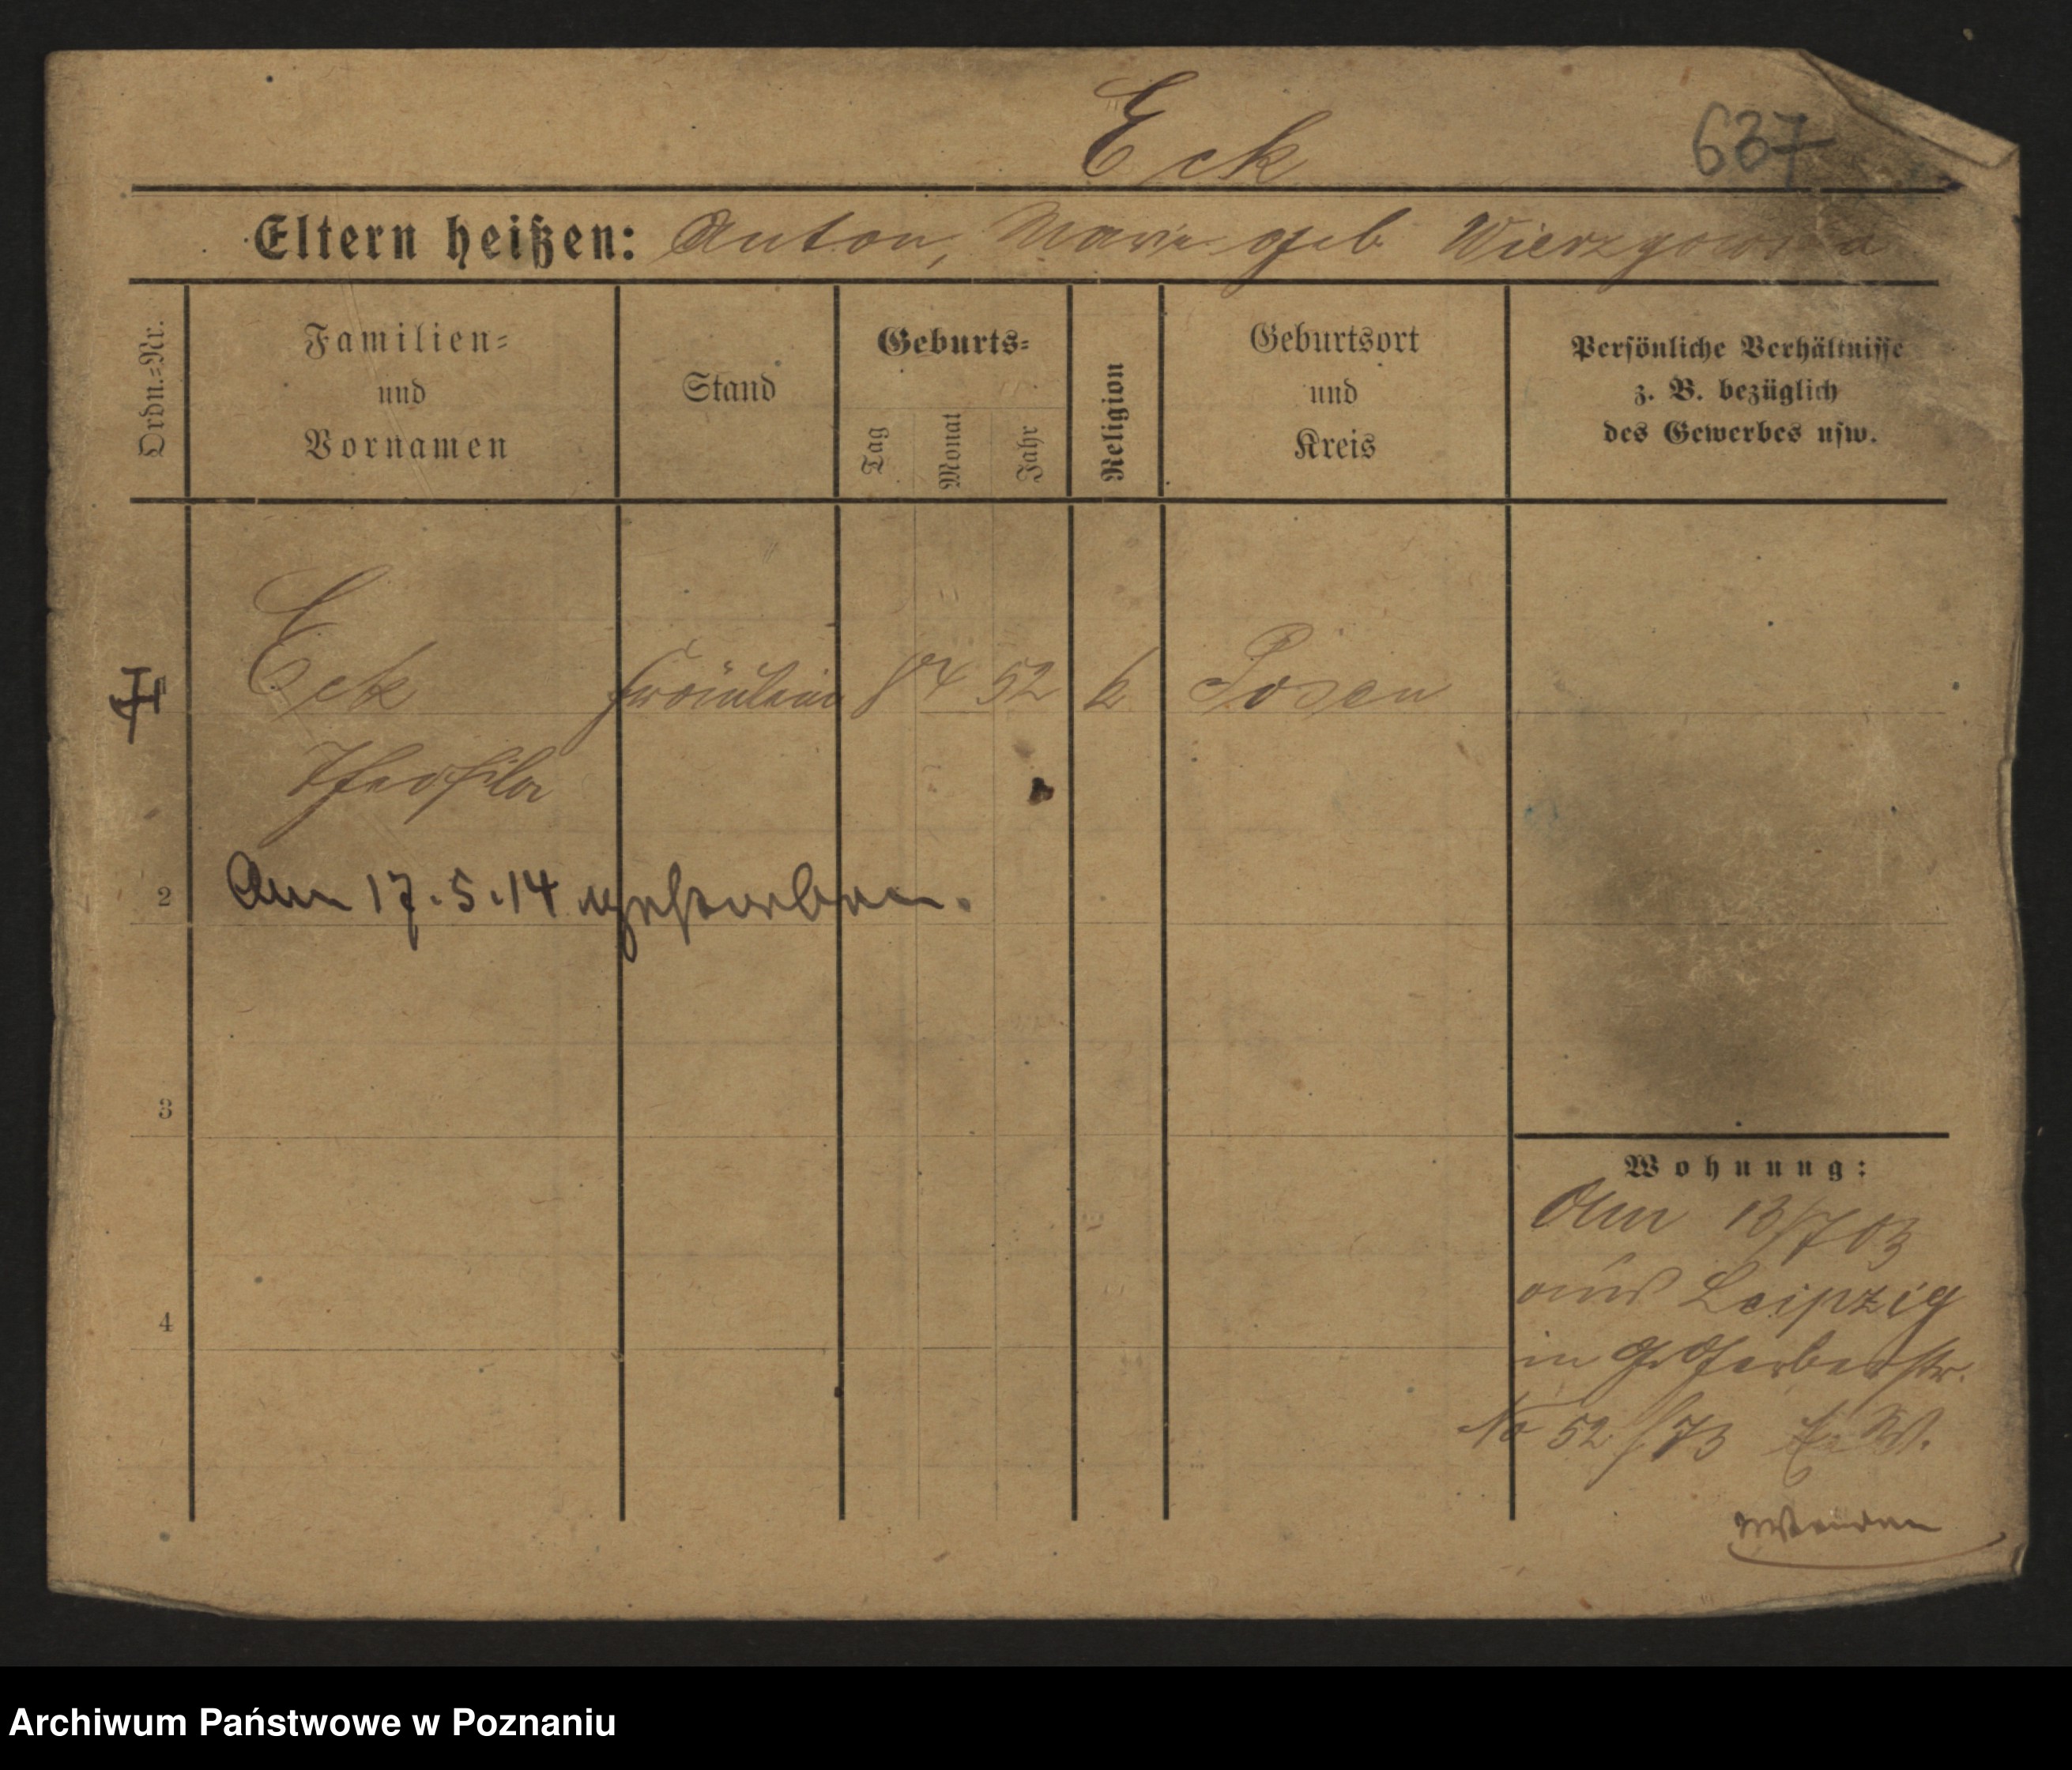 Eck
637
Eltern heißen: Anton, Marie geb
Ordn.=Nr.
Familien=
und
Vornamen
Stand
Geburts=
Tag
Monat
Jahr
Religion
Geburtsort
und
Kreis
Persönliche Verhältnisse
z. B. bezüglich
des Gewerbes usw.
1 Eck Fräulein 8 4 52 k Posen
Theofila
2 Am 17.5.14 gestorben.
3
Wohnung:
Am 13/7 03
aus Leipzig
4
in Gr Gerberstr.
No 52 /73
Wenden
Archiwum Państwowe w Poznaniu